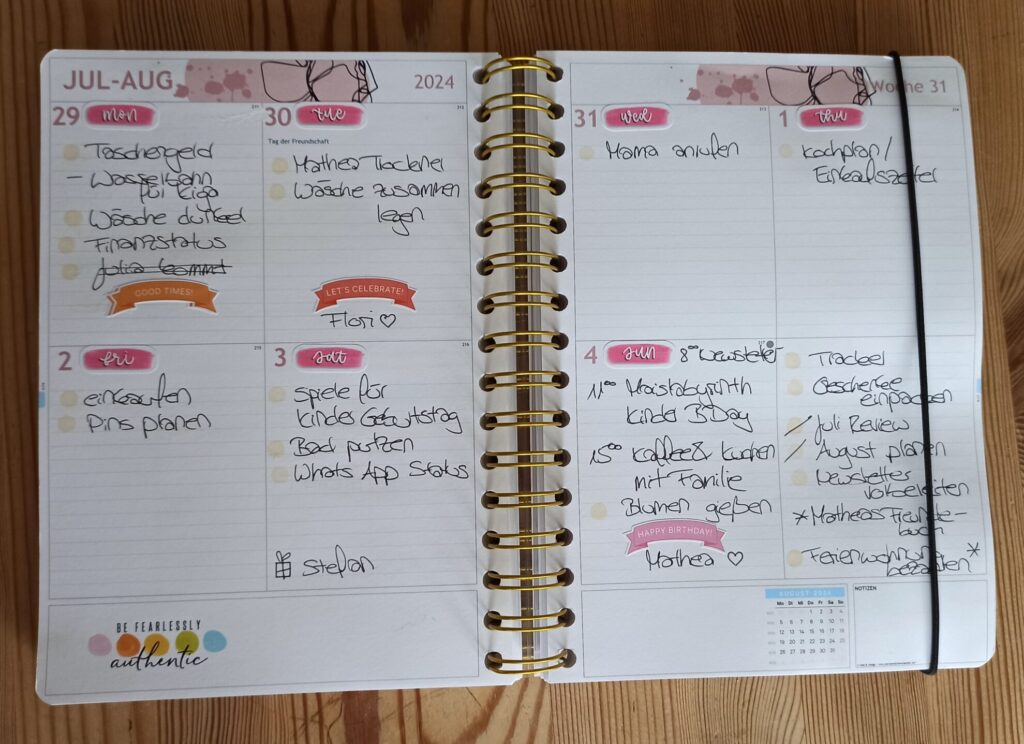 JUL-AUG
2024
29 mon
Taschengeld
– Wasserbahn
für Kiga
Wäsche dunkel
Finanzstatus
Julia kommt
GOOD TIMES!
30 tue
Tag der Freundschaft
Mathea Trocknei
Wäsche zusammen
legen
LET'S CELEBRATE!
Flori ♡
2 fri
einkaufen
Pins planen
3 sat
Spiele für
Kinder Geburtstag
Bad putzen
Whats App Status
Stefan
BE FEARLESSLY
authentic
Woche 31
31 wed
Mama anrufen
1 thu
Kochplan /
Einkaufszettel
4 sun 8⁰⁰ Newsletter
11⁰⁰ Maislabyrinth
Kinder BDay
15⁰⁰ Kaffee & Kuchen
mit Familie
Blumen gießen
HAPPY BIRTHDAY!
Mathea ♡
Geschenke
einpacken
/ Juli Review
/ August planen
Newsletter
* Matheas Freunde-
buch
Ferienwohnung *
bezahlen
AUGUST 2024
Mo Di Mi Do Fr Sa So
1 2 3 4
5 6 7 8 9 10 11
12 13 14 15 16 17 18
19 20 21 22 23 24 25
26 27 28 29 30 31
NOTIZEN